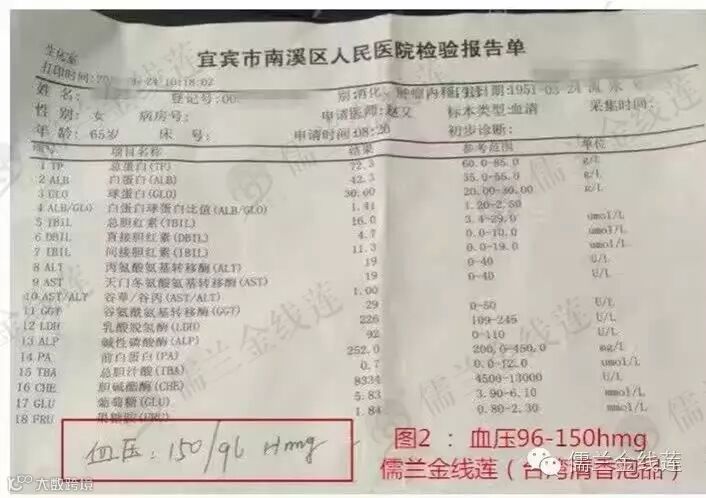 生化室
宜宾市南溪区人民医院检验报告单
打印时间:20 -24 10:18:02
姓 名: 登记号:00 别:消化、肿瘤内科 日期:1951-03-24 流水号
性 别: 女 病房号: 申请医师:赵又 标本类型:血清 采集时间:
年 龄: 65岁 床 号: 申请时间:08:20 初步诊断:
项号 项目名称 结果 参考范围 单位
1 TP 总蛋白(TP) 72.3 60.0-85.0 g/L
2 ALB 白蛋白(ALB) 42.3 35.0-55.0 g/L
3 GLO 球蛋白(GLO) 30.00 20.00-30.00 g/L
4 ALB/GLO 白蛋白球蛋白比值(ALB/GLO) 1.41 1.20-2.50
5 TBIL 总胆红素(TBIL) 16.0 3.4-29.0 umol/L
6 DBIL 直接胆红素(DBIL) 4.7 0.0-10.0 umol/L
7 IBIL 间接胆红素(IBIL) 11.3 0.0-19.0 umol/L
8 ALT 丙氨酸氨基转移酶(ALT) 19 0-40 U/L
9 AST 天门冬氨酸氨基转移酶(AST) 19 0-40 U/L
10 AST/ALT 谷草/谷丙(AST/ALT) 1.00
11 GGT 谷氨酰氨基转移酶(GGT) 29 0-50 U/L
12 LDH 乳酸脱氢酶(LDH) 226 109-245 U/L
13 ALP 碱性磷酸酶(ALP) 92 0-110 U/L
14 PA 前白蛋白(PA) 252.0 200.0-450.0 mg/L
15 TBA 总胆汁酸(TBA) 0.7 0.0-12.0 umol/L
16 CHE 胆碱酯酶(CHE) 8334 4500-13000 U/L
17 GLU 葡萄糖(GLU) 5.83 3.90-6.10 mmol/L
18 FRU 果糖胺(FRU) 1.84 0.80-2.30 mmol/L
血压: 150/96 Hmg
图2 : 血压96-150hmg
儒兰金线莲(台湾清香泡品)
儒兰金线莲
大数跨境